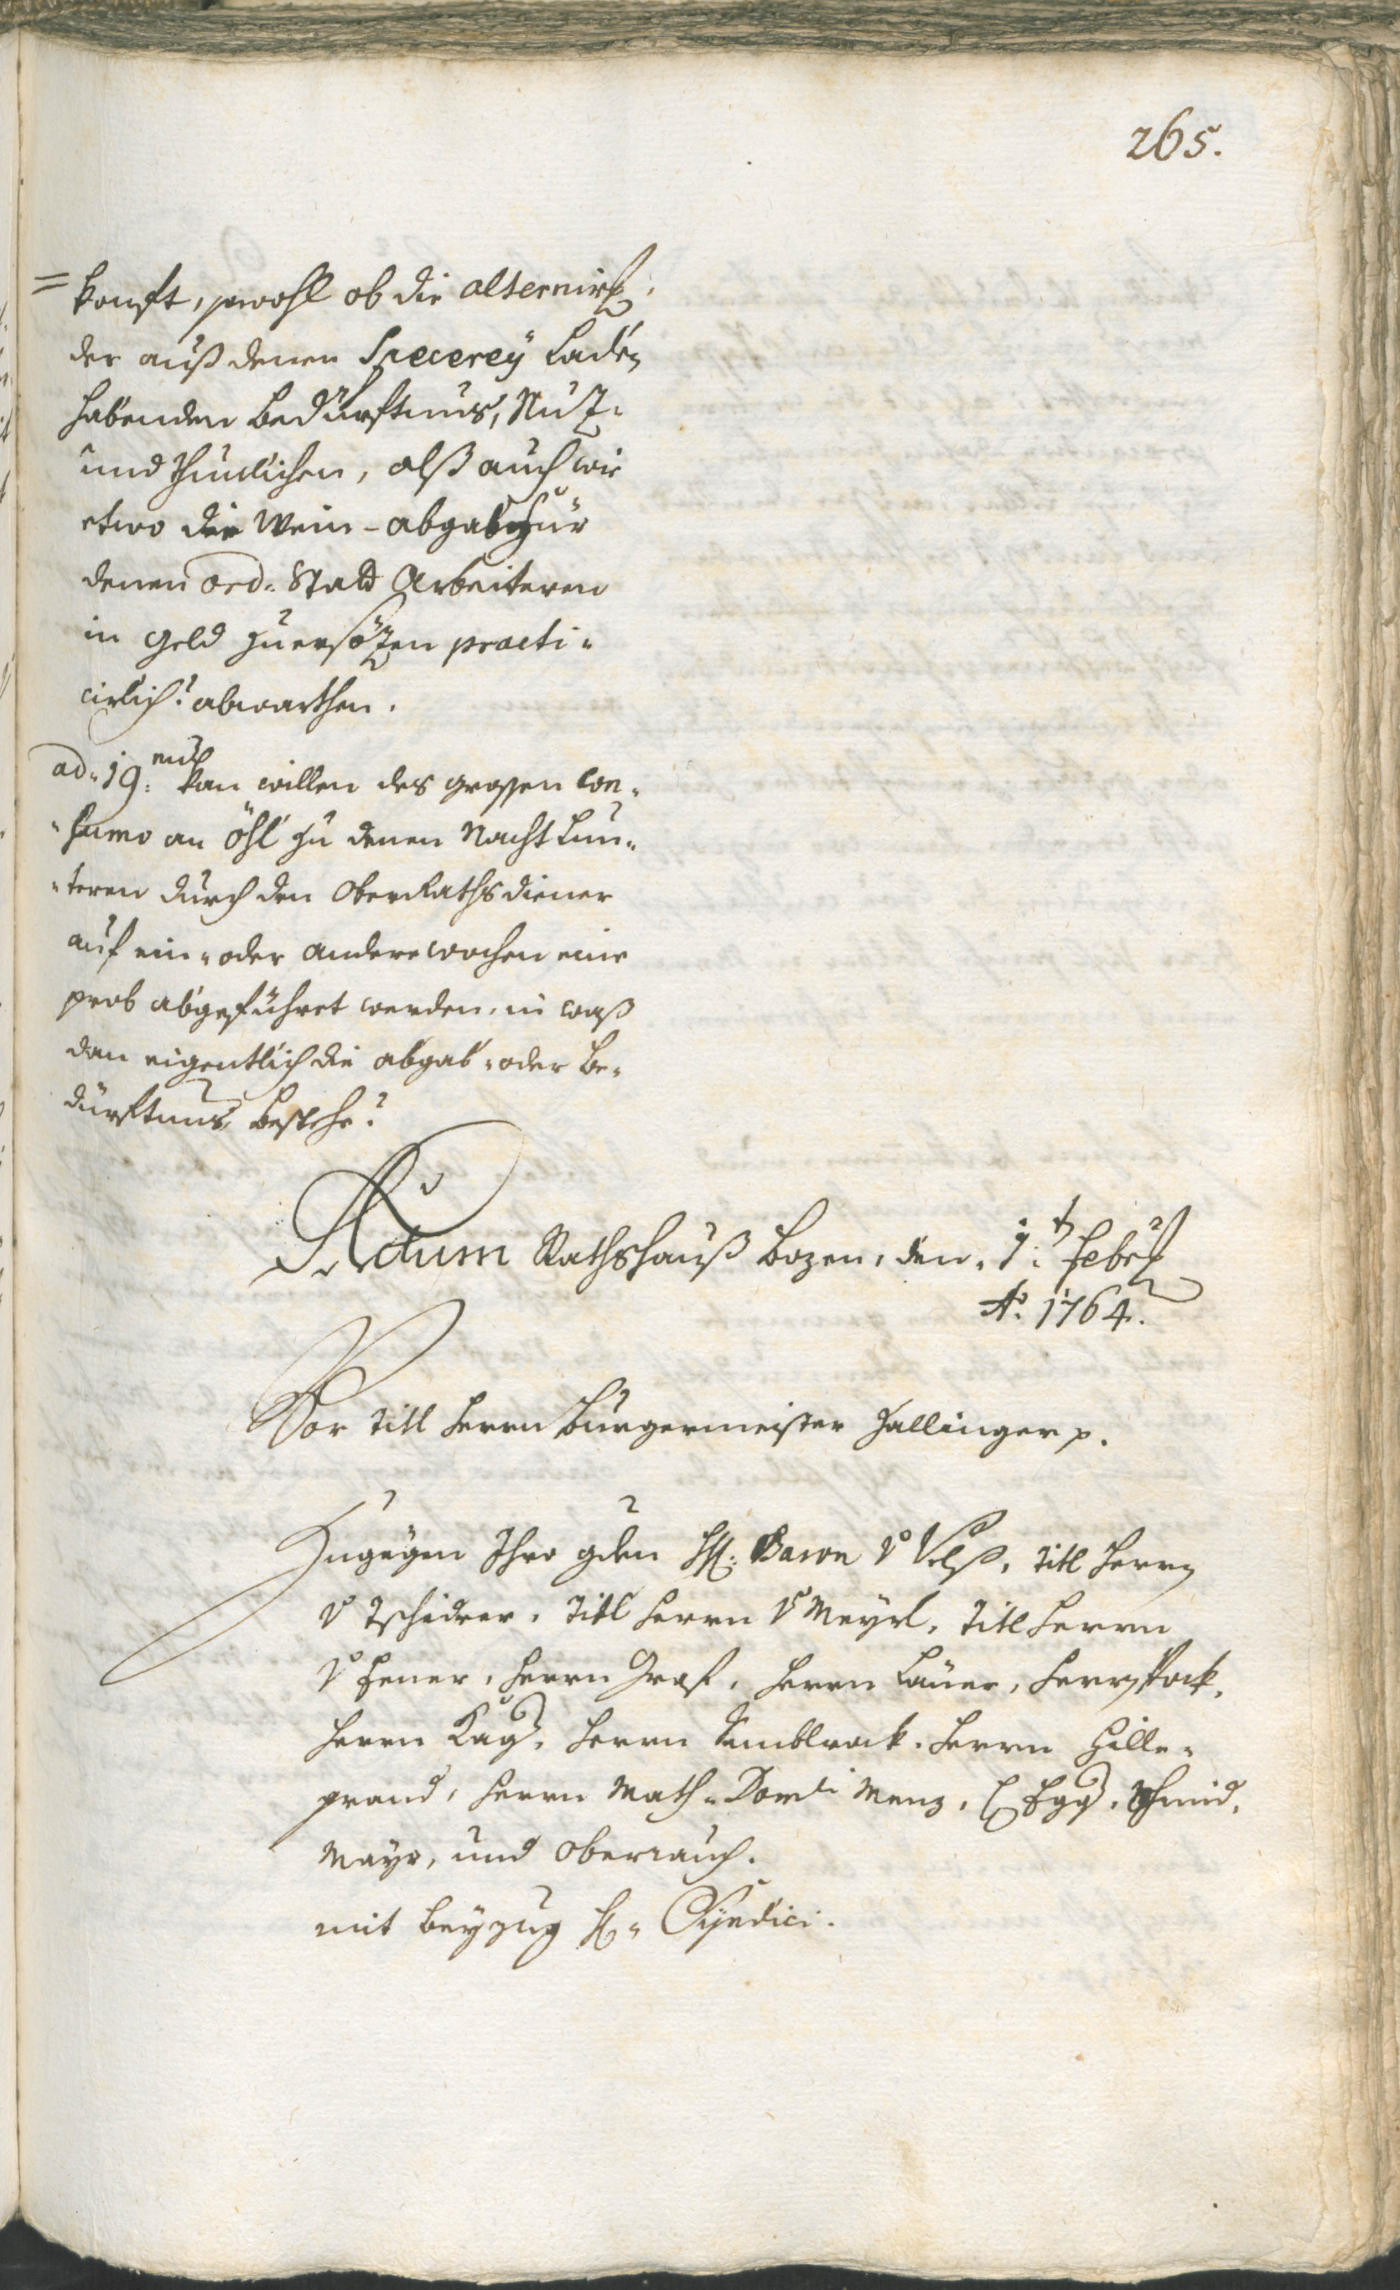 265.
=
konft, sowohl ob die alternirg.
der auß denen Specereÿ Laden
habenden bedürftnus, Nuz-
und thunlichen, alß auch wie
etwo die Wein-abgab für
denen ord: Statt Arbeitern
in geld zuersözen practi-
cirlich? abwarthen.
ad: 19: num kan willen des grossen Con-
-sumo an öhl zu denen Nacht Lan-
-teren durch den Oberrathsdiener
auf ein- oder andere wochen eine
prob abgeführet werden, in waß
dan eigentlich die abgab- oder be-
dürftnus bestehe?
Actum Rathshauß Bozen, den 1:t Febr
Ao: 1764.
Vor Titl Herrn Burgermeister Zallinger p.
Zugegen Ihro gden H: Baron v Velß, Titl Herrn
v Tschidrer, Titl Herrn v Meÿrl, Titl Herrn
v Hener, Herrn Graf, Herrn Lauer, Herrn Pock,
Herrn Kager, Herrn Amblrack, Herrn Hille-
prand, Herrn Math: Domli Menz, Egger, Schmid,
Maÿr, und Oberrauch.
mit beÿzug H: Syndici.